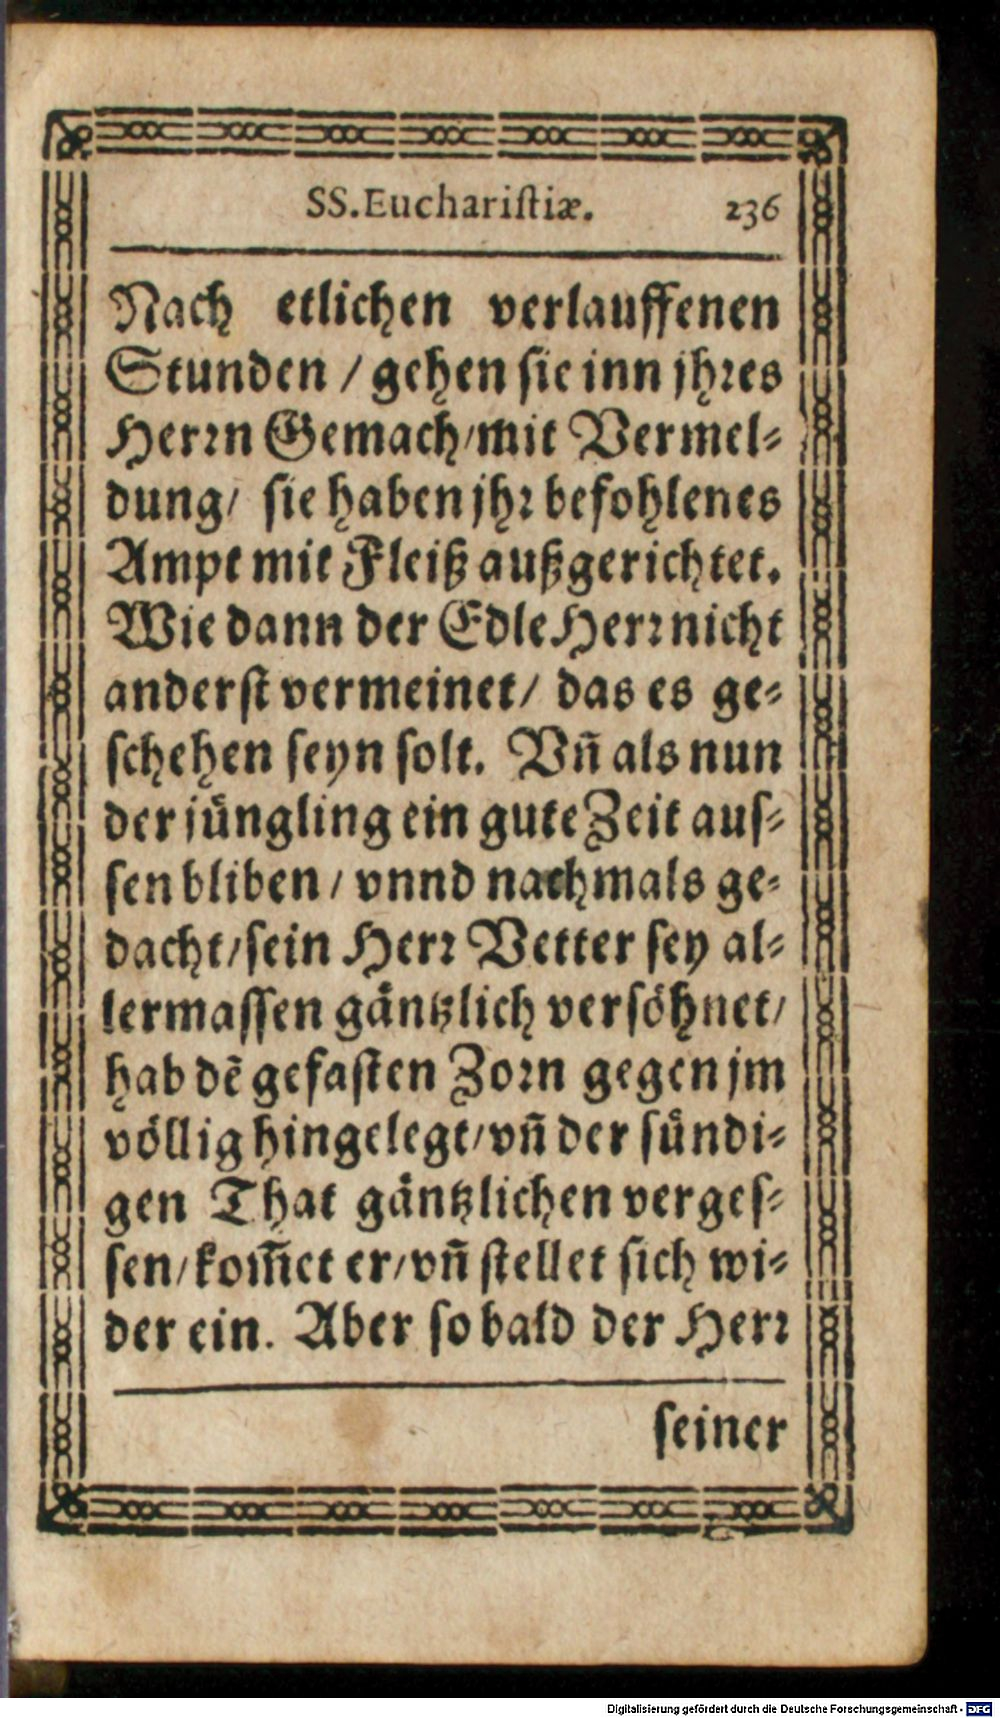 SS. Euchariſtiæ. 236
Nach etlichen verlauffenen
Stunden / gehen ſie inn jhꝛes
Herꝛn Gemach / mit Vermel⸗
dung / ſie haben jhꝛ befohlenes
Ampt mit Fleiß außgerichtet.
Wie dann der Edle Herꝛ nicht
anderſt vermeinet / das es ge⸗
ſchehen ſeyn ſolt. Vñ als nun
der jüngling ein gute Zeit auſ⸗
ſen bliben / vnnd nachmals ge⸗
dacht / ſein Herꝛ Vetter ſey al⸗
lermaſſen gäntzlich verſöhnet /
hab dẽ gefaſten Zoꝛn gegen jm
völlig hingelegt / vñ der ſündi⸗
gen That gäntzlichen vergeſ⸗
ſen / kom̃et er / vñ ſtellet ſich wi⸗
der ein. Aber ſo bald der Herꝛ
ſeiner
Digitalisierung gefördert durch die Deutsche Forschungsgemeinschaft - DFG